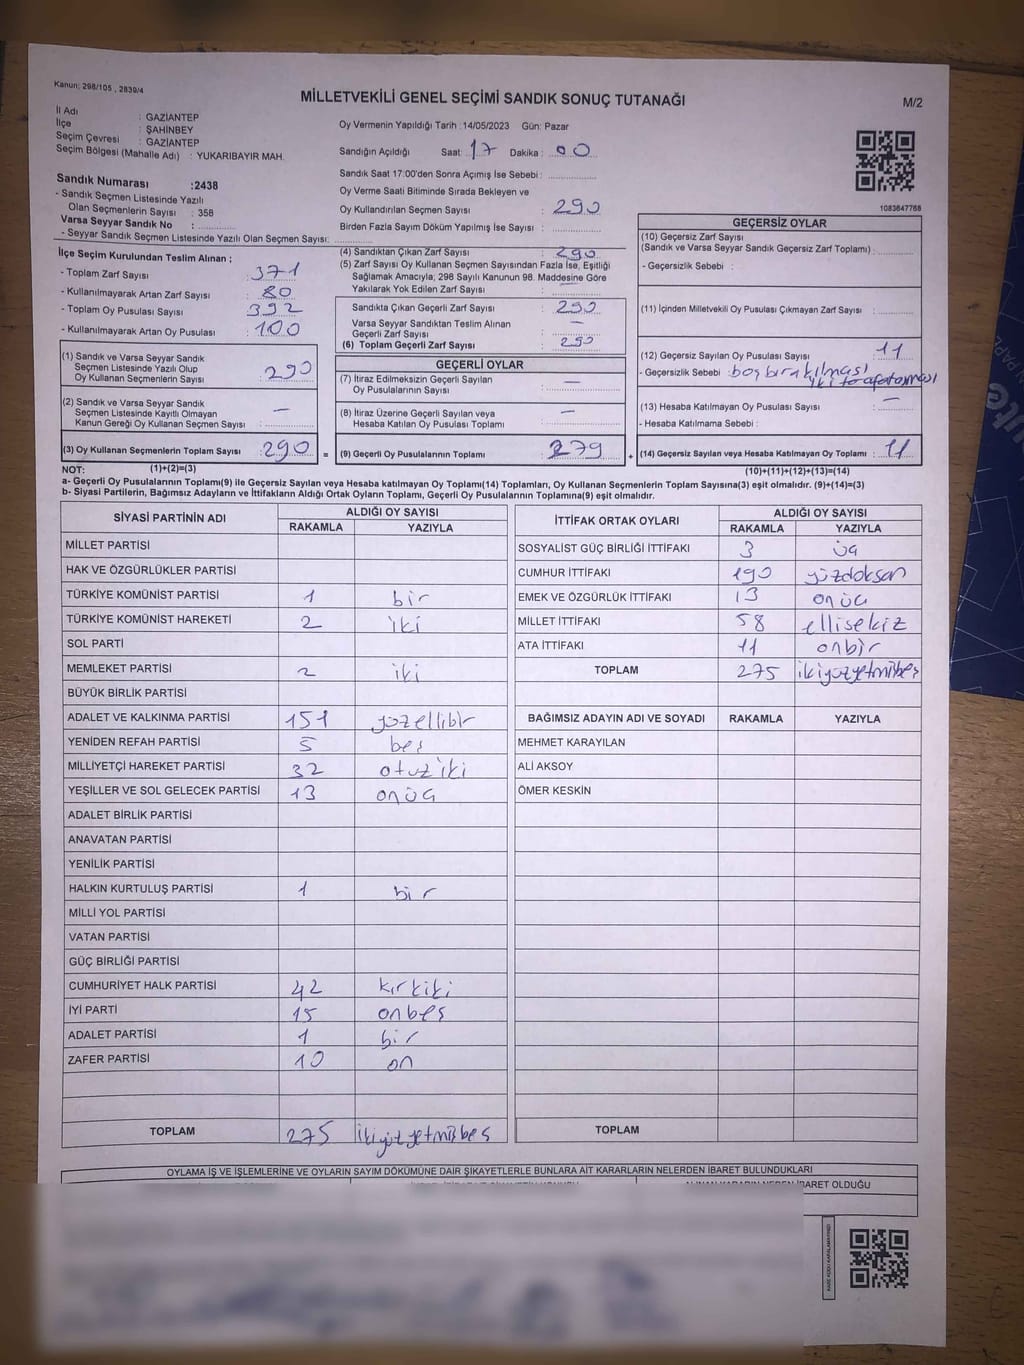 Kanun: 298/105 , 2839/4
MİLLETVEKİLİ GENEL SEÇİMİ SANDIK SONUÇ TUTANAĞI
M/2
İl Adı : GAZİANTEP
İlçe : ŞAHİNBEY
Seçim Çevresi : GAZİANTEP
Seçim Bölgesi (Mahalle Adı) : YUKARIBAYIR MAH.
Oy Vermenin Yapıldığı Tarih :14/05/2023 Gün: Pazar
Sandığın Açıldığı Saat: 17 Dakika : 00
Sandık Saat 17:00'den Sonra Açımış İse Sebebi :
Oy Verme Saati Bitiminde Sırada Bekleyen ve
Oy Kullandırılan Seçmen Sayısı : 290
Birden Fazla Sayım Döküm Yapılmış İse Sayısı :
1083647768
Sandık Numarası :2438
- Sandık Seçmen Listesinde Yazılı
Olan Seçmenlerin Sayısı : 358
Varsa Seyyar Sandık No :
- Seyyar Sandık Seçmen Listesinde Yazılı Olan Seçmen Sayısı:
İlçe Seçim Kurulundan Teslim Alınan ;
- Toplam Zarf Sayısı : 371
- Kullanılmayarak Artan Zarf Sayısı : 80
- Toplam Oy Pusulası Sayısı : 392
- Kullanılmayarak Artan Oy Pusulası : 100
(1) Sandık ve Varsa Seyyar Sandık
Seçmen Listesinde Yazılı Olup
Oy Kullanan Seçmenlerin Sayısı : 290
(2) Sandık ve Varsa Seyyar Sandık
Seçmen Listesinde Kayıtlı Olmayan
Kanun Gereği Oy Kullanan Seçmen Sayısı : —
(3) Oy Kullanan Seçmenlerin Toplam Sayısı : 290 =
(4) Sandıktan Çıkan Zarf Sayısı : 290
(5) Zarf Sayısı Oy Kullanan Seçmen Sayısından Fazla İse, Eşitliği
Sağlamak Amacıyla; 298 Sayılı Kanunun 98. Maddesine Göre
Yakılarak Yok Edilen Zarf Sayısı : —
Sandıkta Çıkan Geçerli Zarf Sayısı : 290
Varsa Seyyar Sandıktan Teslim Alınan
Geçerli Zarf Sayısı : —
(6) Toplam Geçerli Zarf Sayısı : 290
GEÇERLİ OYLAR
(7) İtiraz Edilmeksizin Geçerli Sayılan
Oy Pusulasının Sayısı : —
(8) İtiraz Üzerine Geçerli Sayılan veya
Hesaba Katılan Oy Pusulası Toplamı : —
(9) Geçerli Oy Pusulalarının Toplamı : 279 +
GEÇERSİZ OYLAR
(10) Geçersiz Zarf Sayısı
(Sandık ve Varsa Seyyar Sandık Geçersiz Zarf Toplamı) :
- Geçersizlik Sebebi :
(11) İçinden Milletvekili Oy Pusulası Çıkmayan Zarf Sayısı :
(12) Geçersiz Sayılan Oy Pusulası Sayısı : 11
- Geçersizlik Sebebi : boş bırakılması
(13) Hesaba Katılmayan Oy Pusulası Sayısı : —
- Hesaba Katılmama Sebebi :
(14) Geçersiz Sayılan veya Hesaba Katılmayan Oy Toplamı : 11
NOT: (1)+(2)=(3)
(10)+(11)+(12)+(13)=(14)
a- Geçerli Oy Pusulalarının Toplamı(9) ile Geçersiz Sayılan veya Hesaba katılmayan Oy Toplamı(14) Toplamları, Oy Kullanan Seçmenlerin Toplam Sayısına(3) eşit olmalıdır. (9)+(14)=(3)
b- Siyasi Partilerin, Bağımsız Adayların ve İttifakların Aldığı Ortak Oyların Toplamı, Geçerli Oy Pusulalarının Toplamına(9) eşit olmalıdır.
SİYASİ PARTİNİN ADI ALDIĞI OY SAYISI
RAKAMLA YAZIYLA
MİLLET PARTİSİ
HAK VE ÖZGÜRLÜKLER PARTİSİ
TÜRKİYE KOMÜNİST PARTİSİ 1 bir
TÜRKİYE KOMÜNİST HAREKETİ 2 iki
SOL PARTİ
MEMLEKET PARTİSİ 2 iki
BÜYÜK BİRLİK PARTİSİ
ADALET VE KALKINMA PARTİSİ 151 yüzellibir
YENİDEN REFAH PARTİSİ 5 beş
MİLLİYETÇİ HAREKET PARTİSİ 32 otuziki
YEŞİLLER VE SOL GELECEK PARTİSİ 13 onüç
ADALET BİRLİK PARTİSİ
ANAVATAN PARTİSİ
YENİLİK PARTİSİ
HALKIN KURTULUŞ PARTİSİ 1 bir
MİLLİ YOL PARTİSİ
VATAN PARTİSİ
GÜÇ BİRLİĞİ PARTİSİ
CUMHURİYET HALK PARTİSİ 42 kırkiki
İYİ PARTİ 15 onbeş
ADALET PARTİSİ 1 bir
ZAFER PARTİSİ 10 on
TOPLAM 275 ikiyüzyetmişbeş
İTTİFAK ORTAK OYLARI ALDIĞI OY SAYISI
RAKAMLA YAZIYLA
SOSYALİST GÜÇ BİRLİĞİ İTTİFAKI 3 üç
CUMHUR İTTİFAKI 190 yüzdoksan
EMEK VE ÖZGÜRLÜK İTTİFAKI 13 onüç
MİLLET İTTİFAKI 58 ellisekiz
ATA İTTİFAKI 11 onbir
TOPLAM 275 ikiyüzyetmişbeş
BAĞIMSIZ ADAYIN ADI VE SOYADI RAKAMLA YAZIYLA
MEHMET KARAYILAN
ALİ AKSOY
ÖMER KESKİN
TOPLAM
OYLAMA İŞ VE İŞLEMLERİNE VE OYLARIN SAYIM DÖKÜMÜNE DAİR ŞİKAYETLERLE BUNLARA AİT KARARLARIN NELERDEN İBARET BULUNDUKLARI
İBARET OLDUĞU